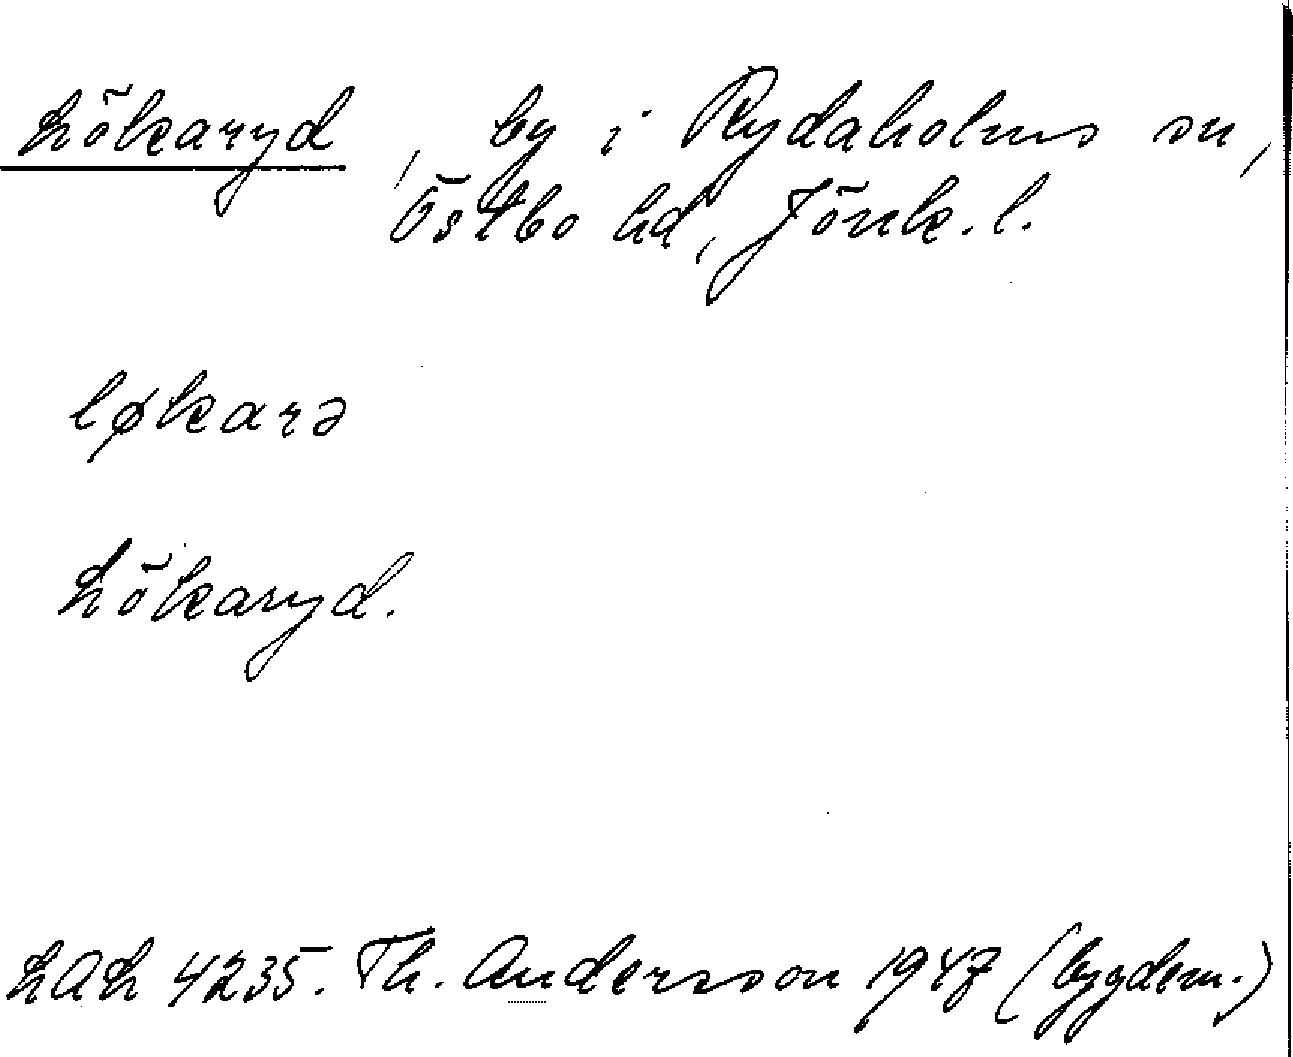 Lökaryd, by i Rydaholms sn,
Östbo hd, Jönk. l.
løkarə
Lökaryd.
LAL 4235. Th. Andersson 1947 (bygdem.)